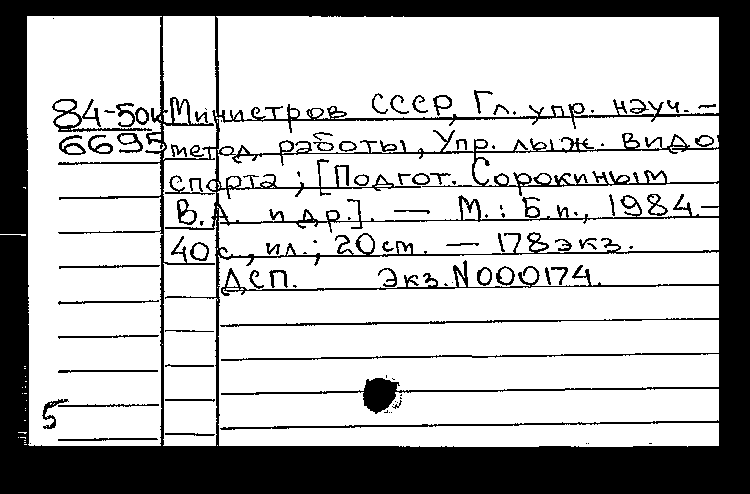 84-50к Министров СССР, Гл. упр. науч. -
6695 метод. работы, Упр. лыж. видо
спорта ; [Подгот. Сорокиным
В.А. и др.]. — М. : Б.и., 1984.-
40 с., ил.; 20 см. — 178 экз.
ДСП. Экз.N000174.
5